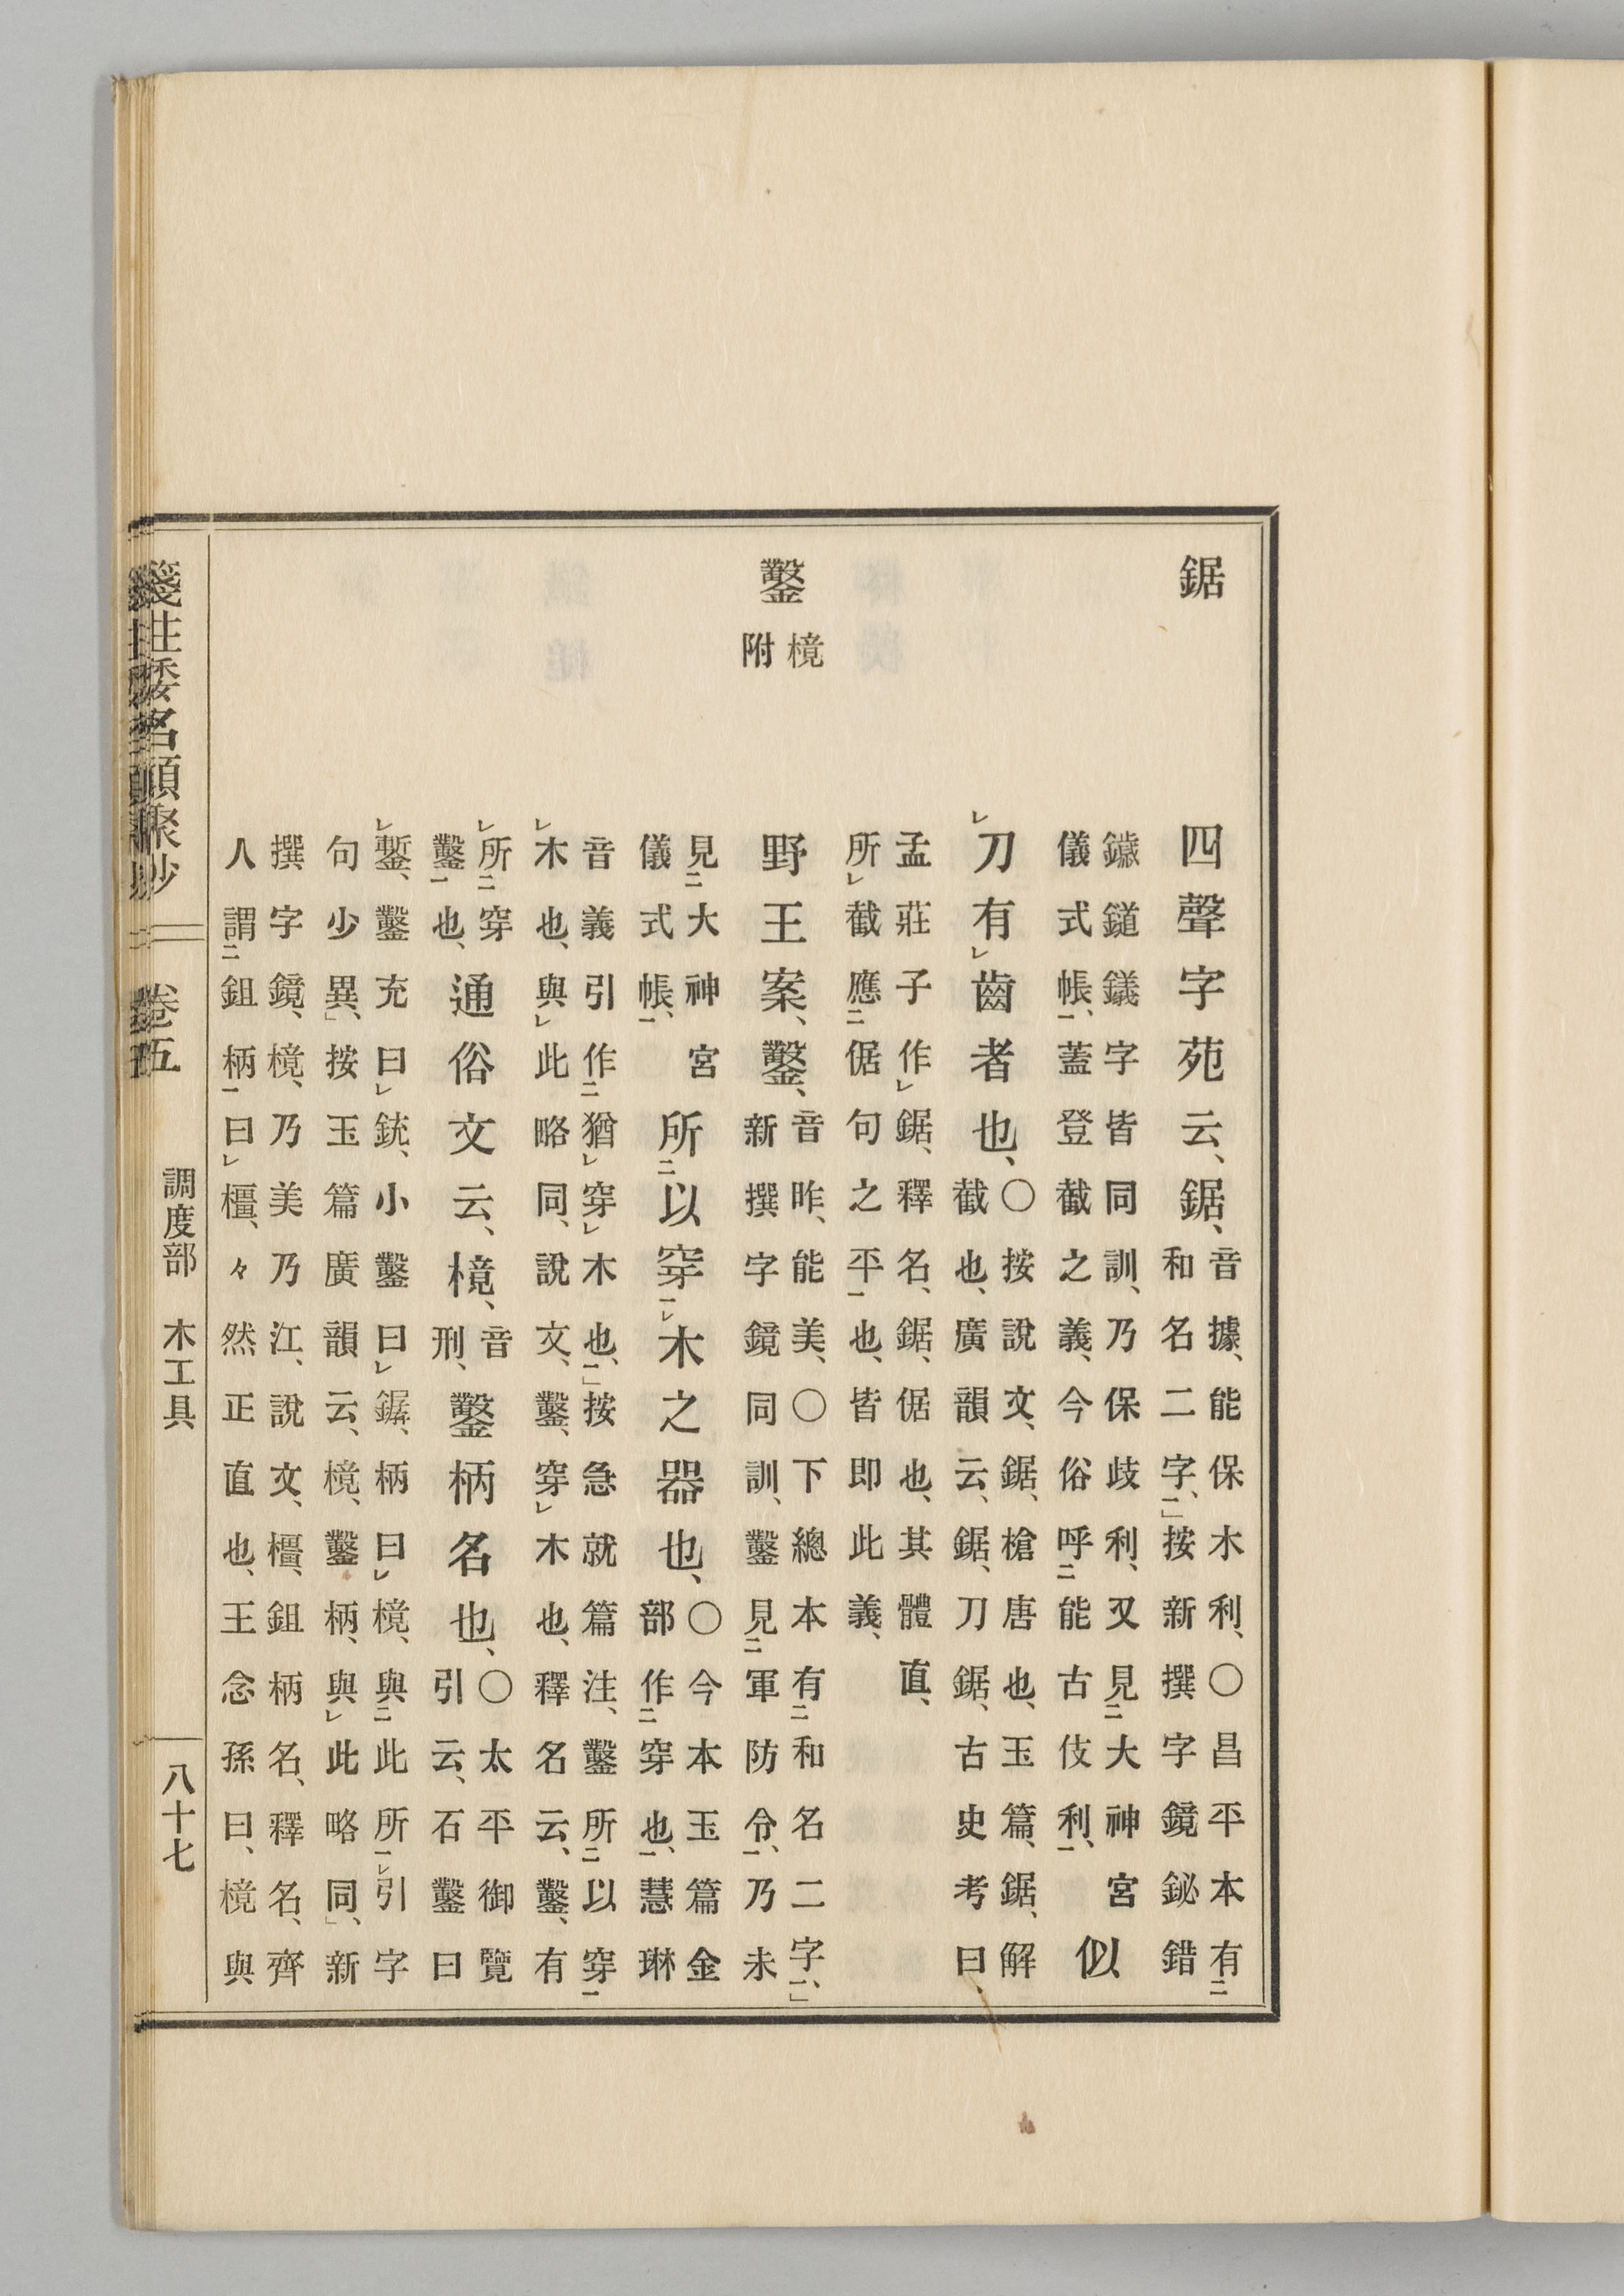 鋸
四聲字苑云、鋸、
音據、能保木利、○昌平本有
和名二字、」按新撰字鏡鉍錯
字皆同訓、乃保歧利、又見大神宮
儀式帳、蓋截之義、今俗呼能古伎利、
似
刀有齒者也、
○按說文、鋸、槍唐也、玉篇、鋸、解
截也、廣韻云、鋸、刀鋸、古史考曰、
孟莊子作鋸、釋名、鋸、倨也、其體直、
所截應倨句之平也、皆即此義、
鑿
樈
附
野王案、鑿、
音昨、能美、○下總本有和名二字、」
新撰字鏡同訓、鑿見軍防令、乃未
見大神宮
儀式帳、
所以穿木之器也、
○今本玉篇金
部作穿也、慧琳
音義引作猶穿木也、」按急就篇注、鑿所以穿
木也、與此略同、說文、鑿、穿木也、釋名云、鑿、有
所穿
鑿也、
通俗文云、樈、
音
刑、
鑿柄名也、
○太平御覽
引云、石鑿曰
鏨、鑿充曰銃、小鑿曰、柄曰樈、與此所引字
句少異、」按玉篇廣韻云、樈、鑿柄、與此略同、」新
撰字鏡、樈、乃美乃江、說文、橿、鉏柄名、釋名、齊
人謂鉏柄曰橿、々然正直也、王念孫曰、樈與
箋註倭名類聚抄 卷五 調度部 木工具 八十七